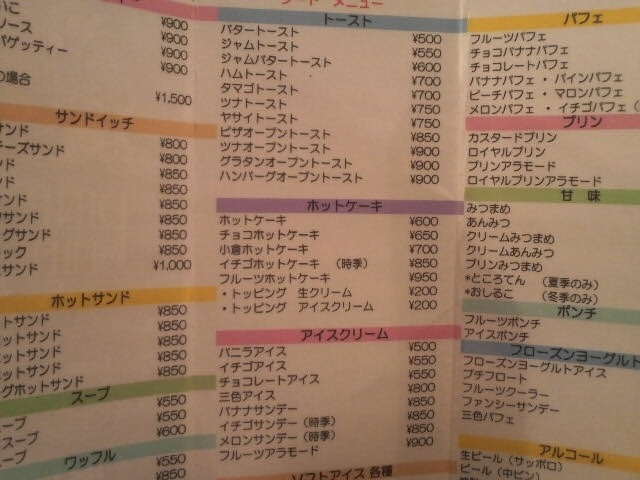 ¥900
ソース ¥900
パゲッティー ¥900
¥900
の場合
¥1,500
サンドイッチ
サンド ¥800
チーズサンド ¥800
ンド ¥850
ンド ¥850
サンド ¥850
グサンド ¥850
ック ¥850
サンド ¥1,000
ホットサンド
ットサンド ¥850
ットサンド ¥850
ットサンド ¥850
ットサンド ¥850
グホットサンド ¥850
スープ
ープ ¥550
スープ ¥550
ープ ¥600
ワッフル
¥550
¥850
メニュー
トースト
バタートースト ¥500
ジャムトースト ¥550
ジャムバタートースト ¥600
ハムトースト ¥700
タマゴトースト ¥700
ツナトースト ¥750
ヤサイトースト ¥750
ピザオープントースト ¥850
ツナオープントースト ¥900
グラタンオープントースト ¥900
ハンバーグオープントースト ¥900
ホットケーキ
ホットケーキ ¥600
チョコホットケーキ ¥650
小倉ホットケーキ ¥700
イチゴホットケーキ (時季) ¥850
フルーツホットケーキ ¥950
・トッピング 生クリーム ¥200
・トッピング アイスクリーム ¥200
アイスクリーム
バニラアイス ¥500
イチゴアイス ¥550
チョコレートアイス ¥550
三色アイス ¥800
バナナサンデー ¥850
イチゴサンデー (時季) ¥850
メロンサンデー (時季) ¥850
フルーツアラモード ¥900
ソフトアイス 各種
パフェ
フルーツパフェ
チョコバナナパフェ
チョコレートパフェ
バナナパフェ・パインパフェ
ピーチパフェ・マロンパフェ
メロンパフェ・イチゴパフェ (
プリン
カスタードプリン
ロイヤルプリン
プリンアラモード
ロイヤルプリンアラモード
甘 味
みつまめ
あんみつ
クリームみつまめ
クリームあんみつ
プリンみつまめ
*ところてん (夏季のみ)
*おしるこ (冬季のみ)
ポンチ
フルーツポンチ
アイスポンチ
フローズンヨーグルト
フローズンヨーグルトアイス
プチフロート
フルーツクーラー
ファンシーサンデー
三色パフェ
アルコール
生ビール (サッポロ)
ビール (中ビン)